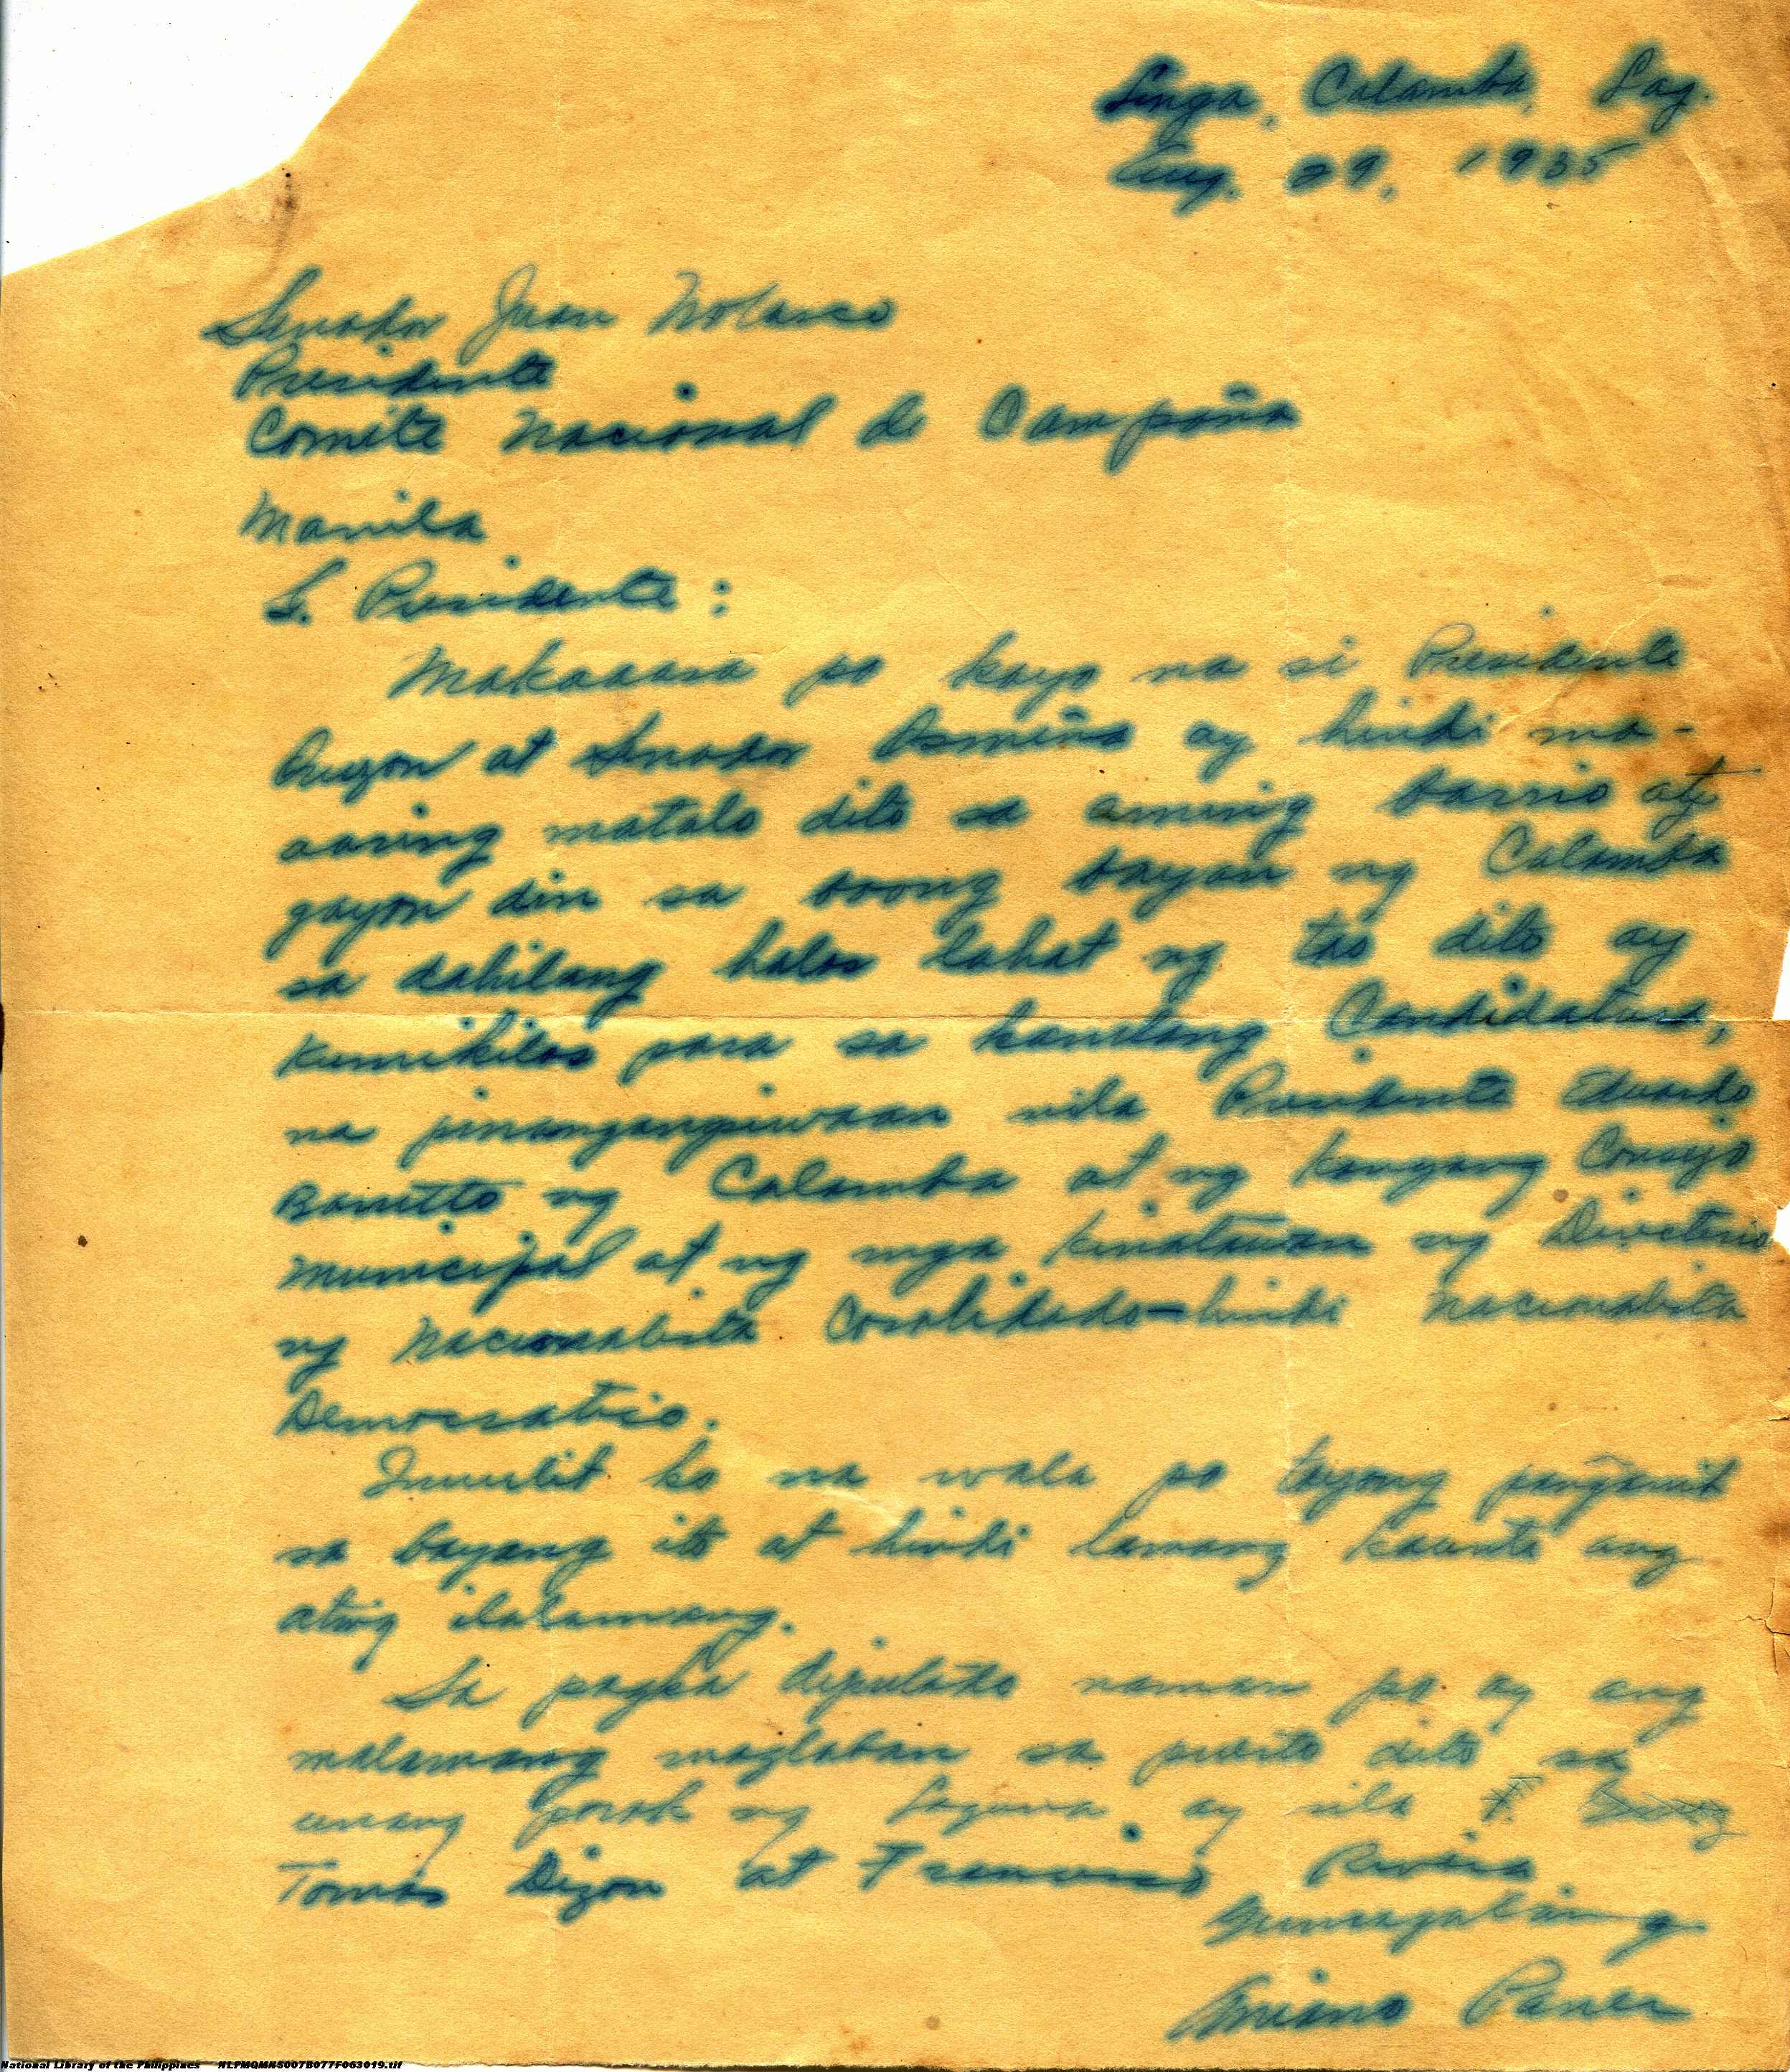 Linga, Calamba, Lag.
Aug. 29, 1935
Senador Juan Nolasco
Presidente
Comite Nacional de Campaña
Manila
S. Presidente:
Makaaasa po kayo na si Presidente
Quezon at Senador Osmeña ay hindi ma-
aaring matalo dito sa aming barrio at
gayon din sa boong bayan ng Calamba
sa dahilang halos lahat ng tao dito ay
kumikilos para sa kanilang Candidatura,
na pinangangasiwaan nila Presidente Eduardo
Barretto ng Calamba at ng kanyang Consejo
Municipal at ng mga kinatawan ng Directorio
ng Nacionalista Cosolidado-hindi Nacionalista
Democratico.
Inuulit ko na wala po tayong panganib
sa bayang ito at hindi lamang kaunti ang
ating ilalamang.
Sa pagka diputado naman po ay ang
malamang maglaban sa puesto dito sa
unang pook ng Laguna ay sila F.
Tomas Dizon at Francisco
Gumagalang